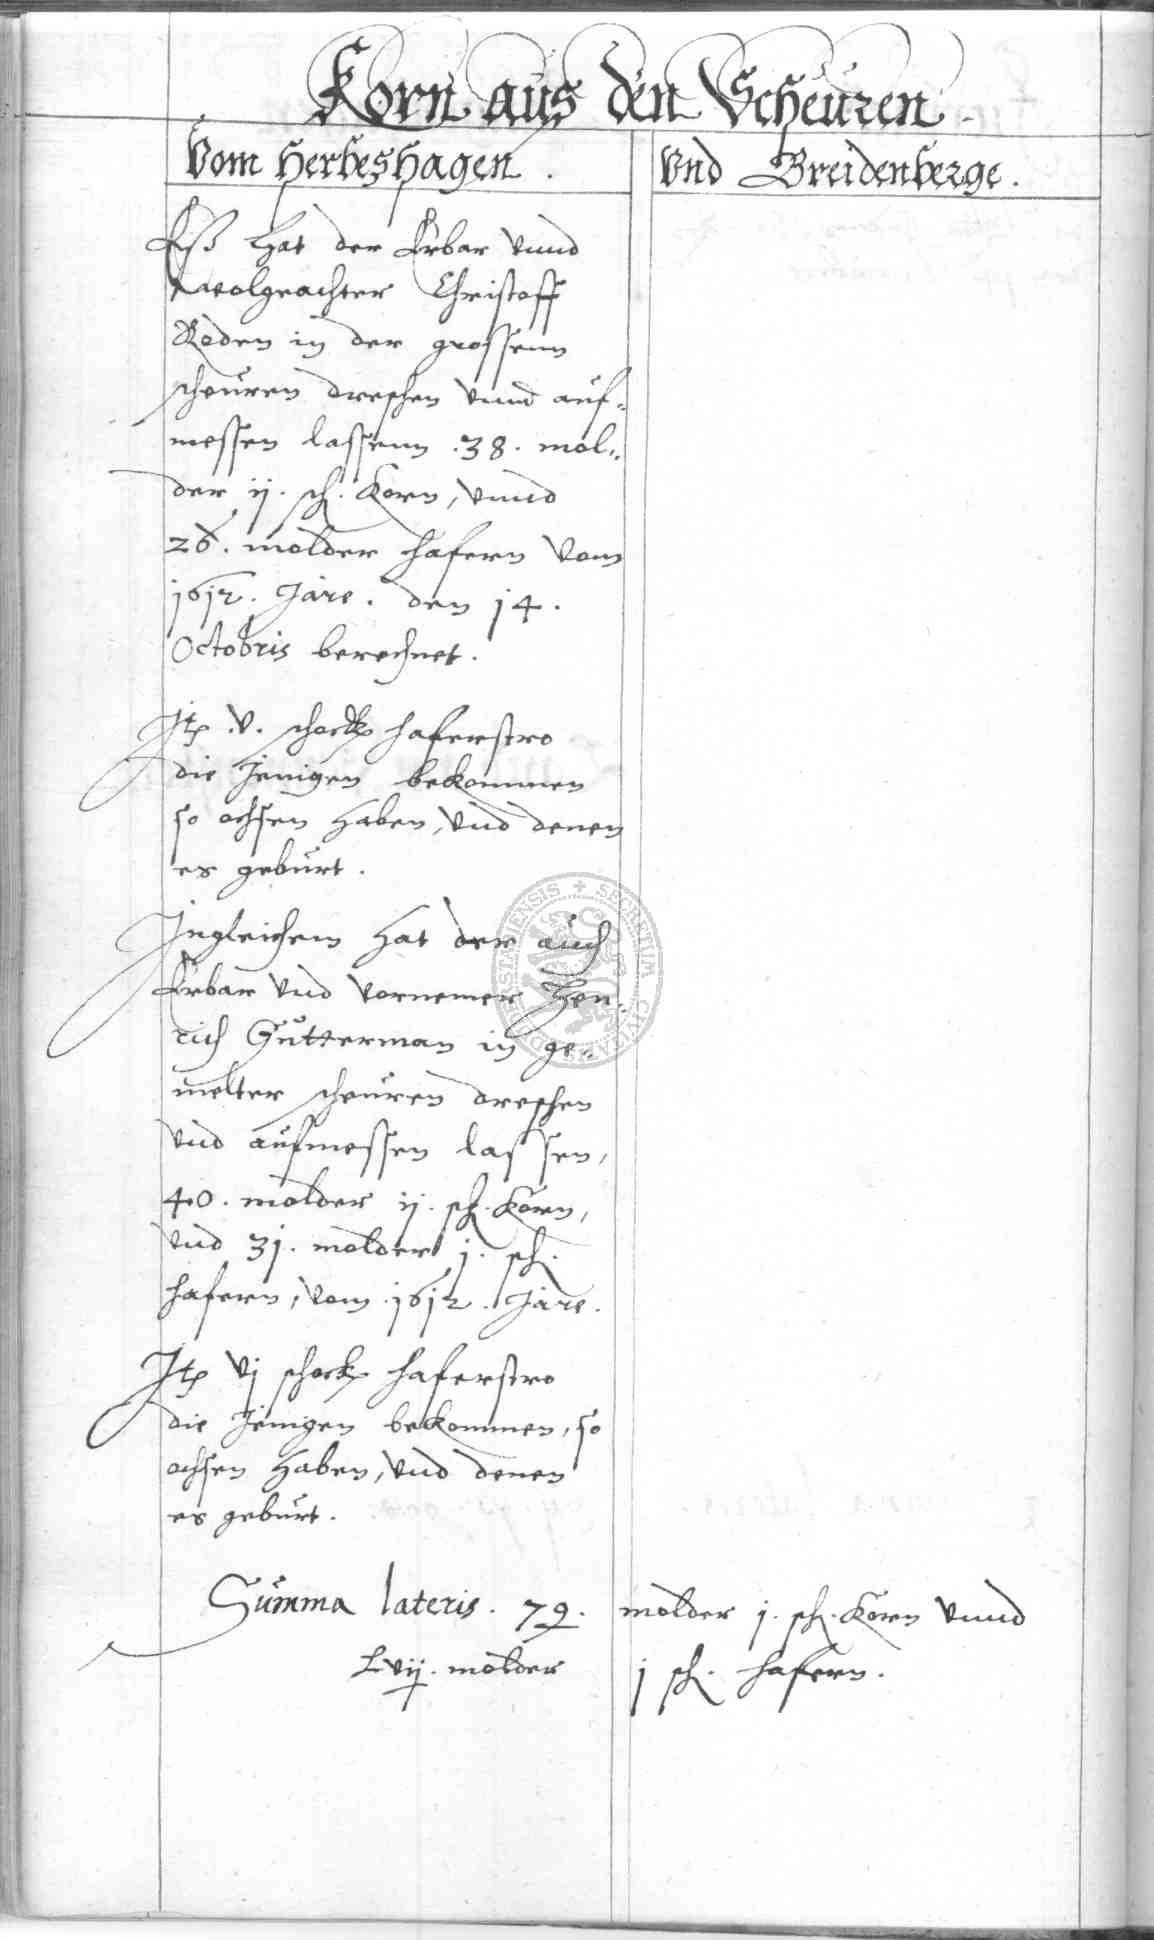 Korn aus den Scheuren.
Vom Herbeshagen.
Vnd Breidenberge.
Eß hat der Erbar vnnd
wolgeachter Christoff
Roden in der grossenn
scheuren dreschen vnnd auf=
messen lassenn .38. mol=
der ij. sch. Korn, vnnd
26. molder hafern vom
1612. Jare. den 14.
Octobris berechnet.
Jtz .v. schock haferstro
die Jenigen bekommen
so ochsen haben, vnd denen
es geburt.
Jngleichem hat der auch
Erbar vnd vornemer Hen=
rich Gutterman in ge=
melter scheuren dreschen
vnd aufmessen lassen,
40. molder ij. sch. Korn,
vnd 31. molder j. sch.
hafern, vom .1612. Jare.
Jtz vj schock haferstro
die Jenigen bekommen, so
ochsen haben, vnd denen
es geburt.
Summa lateris. 79. molder j. sch. Korn vnnd
Lvij. molder j sch. hafern.
SECRETUM CIVITATIS DUDERSTADIENSIS